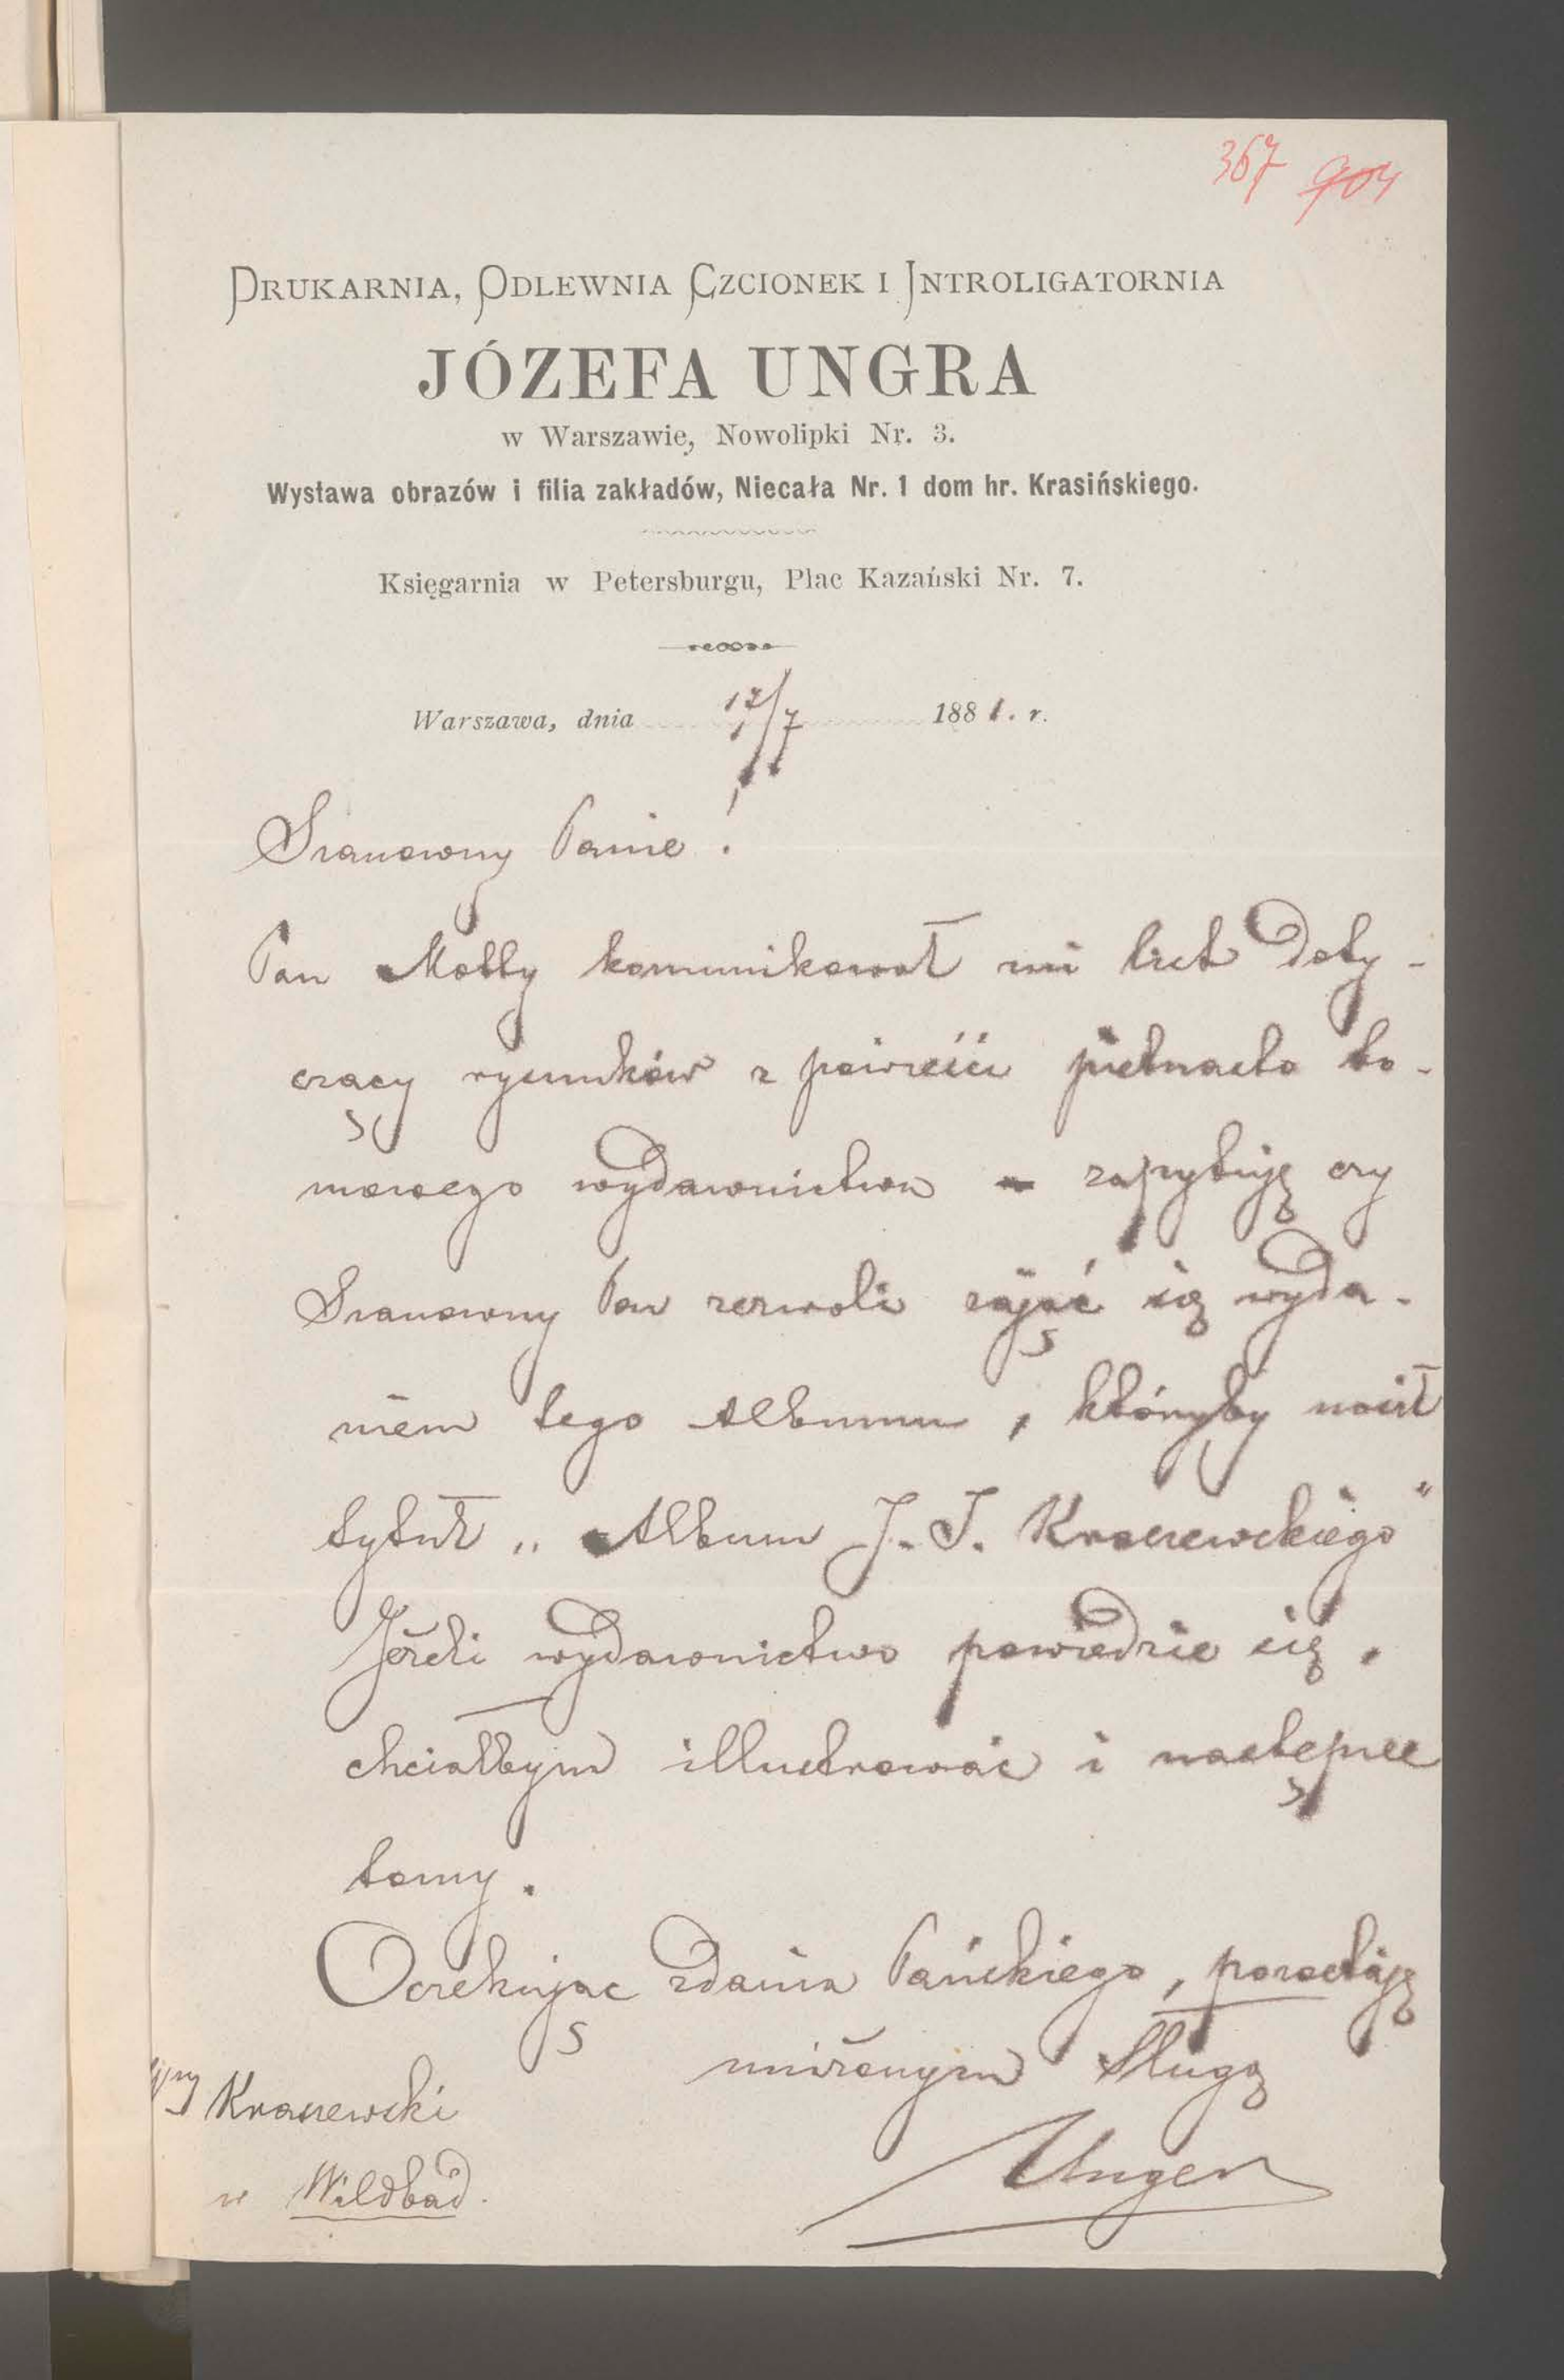 367 904
DRUKARNIA, ODLEWNIA CZCIONEK I INTROLIGATORNIA
JÓZEFA UNGRA
w Warszawie, Nowolipki Nr. 3.
Wystawa obrazów i filia zakładów, Niecała Nr. 1 dom hr. Krasińskiego.
Księgarnia w Petersburgu, Plac Kazański Nr. 7.
Warszawa, dnia 17/7 1881. r.
Szanowny Panie!
Pan komunikował mi list doty-
czący rysunków z powieści pietnasto to-
mowego wydawnictwa - zapytuję czy
Szanowny Pan zezwoli zająć się wyda-
niem tego Albumu, któryby nosił
tytuł „Album J. I. Kraszewskiego"
Jeżeli wydawnictwo powiedzie się,
chciałbym illustrować i następne
tomy.
Oczekując zdania Pańskiego, pozostaję
uniżonym Sługą
Kraszewski
w Wildbad.
Unger